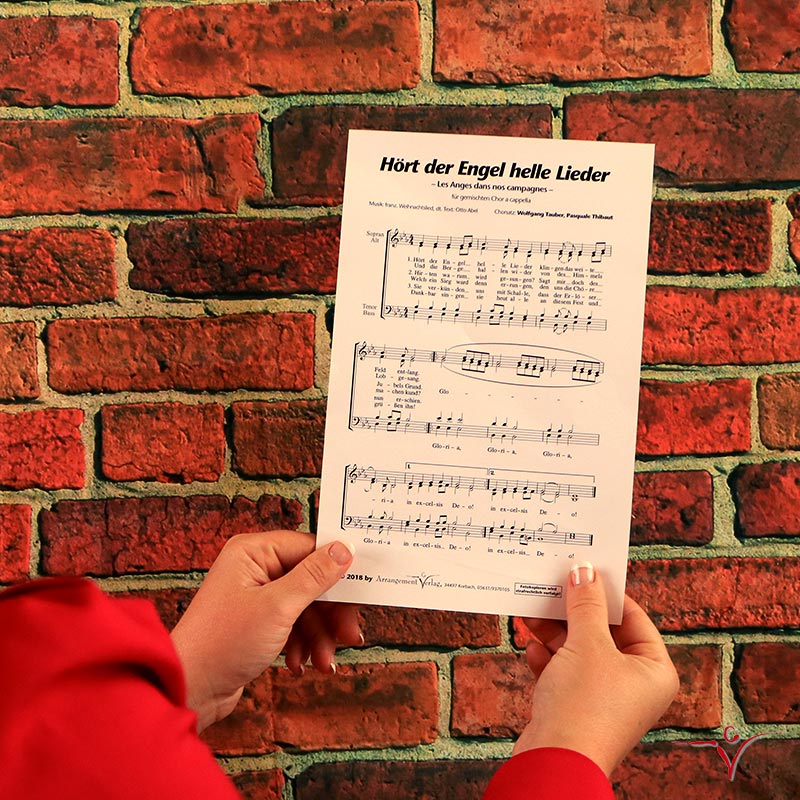 Hört der Engel helle Lieder
– Les Anges dans nos campagnes –
für gemischten Chor a cappella
Musik: franz. Weihnachtslied, dt. Text: Otto Abel Chorsatz: Wolfgang Tauber, Pasquale Thibaut
Sopran
Alt
1. Hört der En - gel hel - le Lie - der klin - gen das wei - te
Und die Ber - ge hal - len wi - der von des Him - mels
2. Hir - ten wa - rum wird ge - sun - gen? Sagt mir doch der
Welch ein Sieg ward denn er - run - gen, den uns die Chö - re
3. Sie ver - kün - den uns mit Schal - le, dass der Er - lö - ser
Dank - bar sin - gen sie heut al - le an diesem Fest und
Tenor
Bass
Feld ent - lang.
Lob - ge - sang.
Ju - bels Grund.
ma - chen kund?
nun er - schien.
grü - ßen ihn!
Glo - - - - -
Glo - ri - a, Glo - ri - a, Glo - ri - a,
1. 2.
- ri - a in ex - cel - sis De - o! in ex - cel - sis De - o!
Glo - ri - a in ex - cel - sis De - o! in ex - cel - sis De - o!
© 2018 by Arrangement Verlag, 34497 Korbach, 05631/9370105
Fotokopieren wird
strafrechtlich verfolgt!